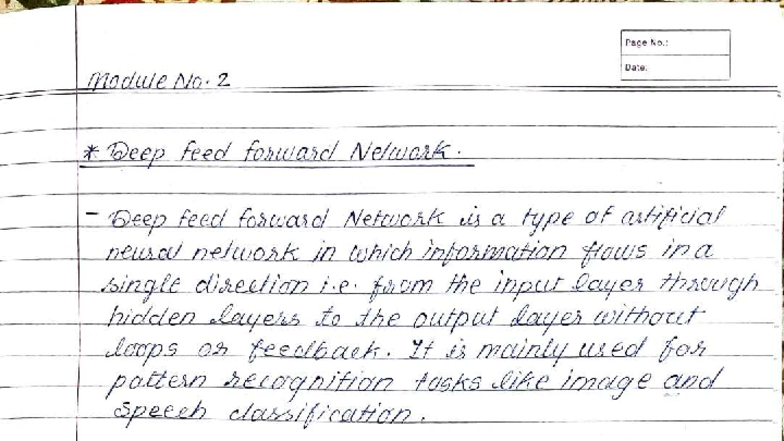 Page No.:
Date:
Module No. 2
* Deep feed forward Network.
- Deep feed forward Network is a type of artificial
neural network in which information flows in a
single direction i.e. from the input layer through
hidden layers to the output layer without
loops or feedback. It is mainly used for
pattern recognition tasks like image and
speech classification.